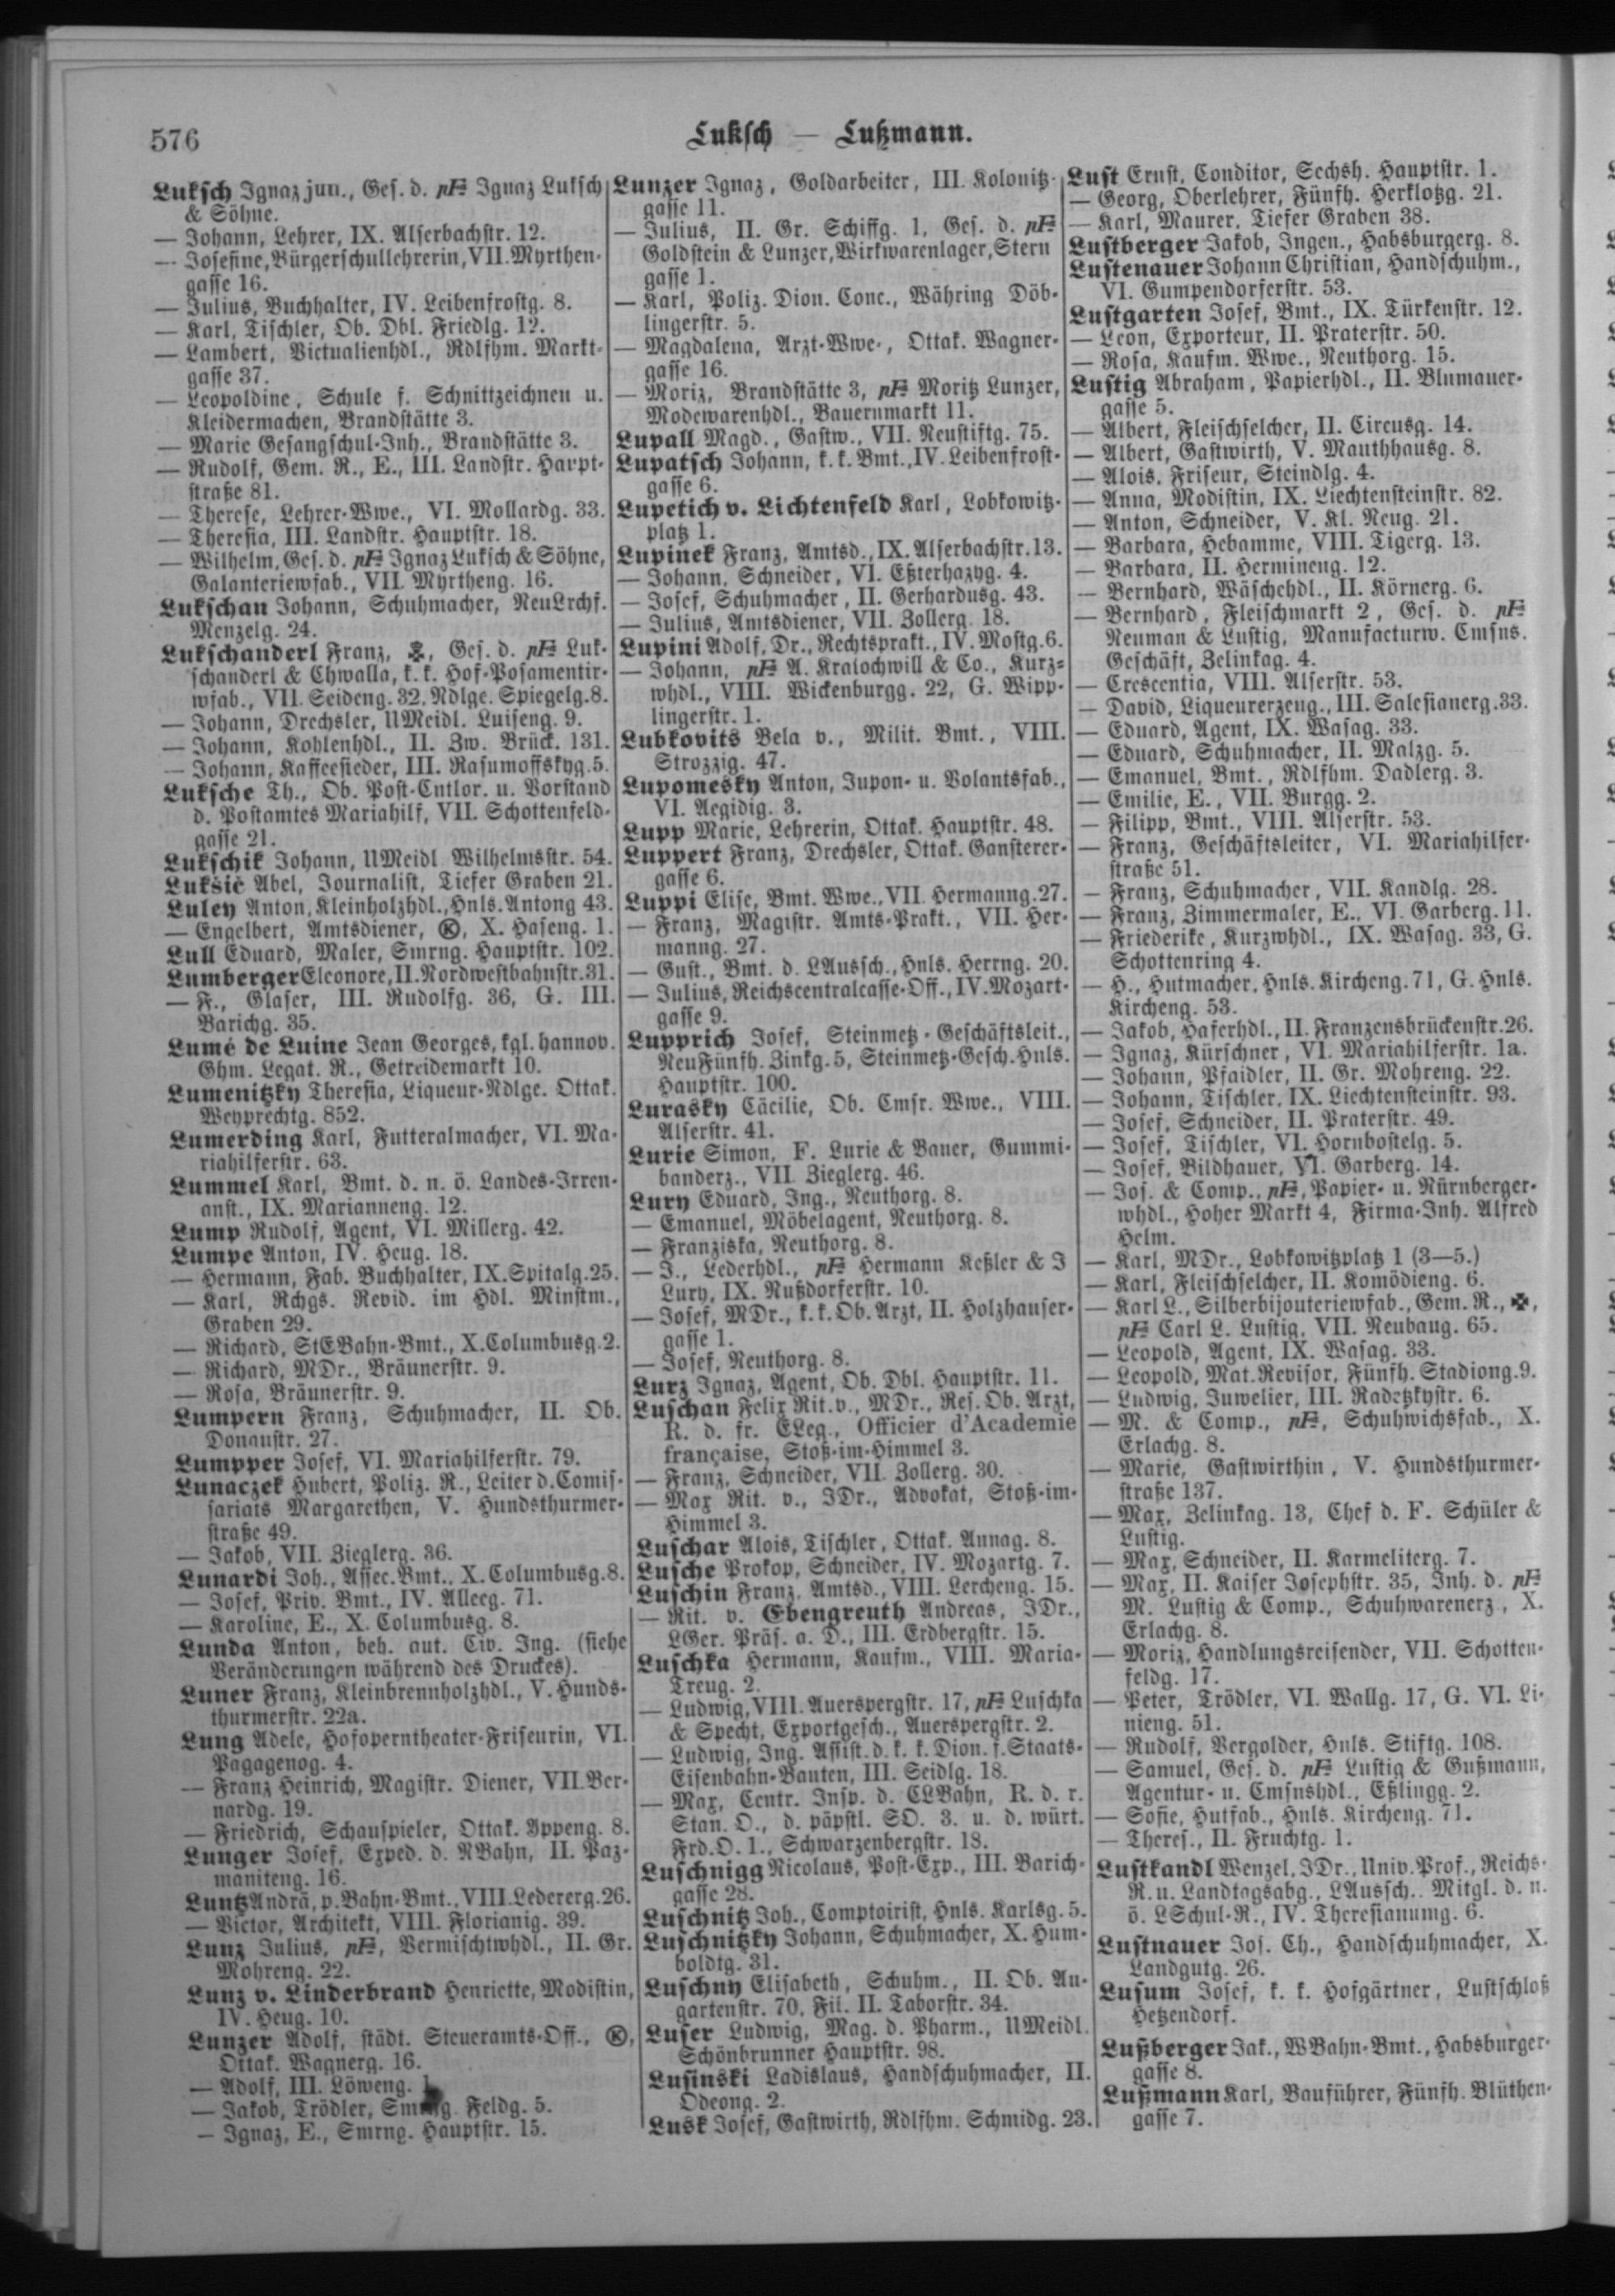 576
Luksch — Lußmann.
Luksch Ignaz jun., Ges. d. pF Ignaz Luksch
& Söhne.
— Johann, Lehrer, IX. Alserbachstr. 12.
— Josefine, Bürgerschullehrerin, VII. Myrthen-
gasse 16.
— Julius, Buchhalter, IV. Leibenfrostg. 8.
— Karl, Tischler, Ob. Dbl. Friedlg. 12.
— Lambert, Victualienhdl., Rdlfhm. Markt-
gasse 37.
— Leopoldine, Schule f. Schnittzeichnen u.
Kleidermachen, Brandstätte 3.
— Marie Gesangschul-Inh., Brandstätte 3.
— Rudolf, Gem. R., E., III. Landstr. Haupt-
straße 81.
— Therese, Lehrer-Wwe., VI. Mollardg. 33.
— Theresia, III. Landstr. Hauptstr. 18.
— Wilhelm, Ges. d. pF Ignaz Luksch & Söhne,
Galanteriewfab., VII. Myrtheng. 16.
Lukschan Johann, Schuhmacher, NeuLrchf.
Menzelg. 24.
Lukschanderl Franz, Ges. d. pF Luk-
schanderl & Chwalla, k. k. Hof-Posamentir-
wfab., VII. Seideng. 32. Ndlge. Spiegelg. 8.
— Johann, Drechsler, UMeidl. Luiseng. 9.
— Johann, Kohlenhdl., II. Zw. Brück. 131.
— Johann, Kaffeesieder, III. Rasumoffskyg. 5.
Luksche Th., Ob. Post-Cntlor. u. Vorstand
d. Postamtes Mariahilf, VII. Schottenfeld-
gasse 21.
Lukschik Johann, UMeidl Wilhelmsstr. 54.
Lukšić Abel, Journalist, Tiefer Graben 21.
Luley Anton, Kleinholzhdl., Hnls. Antong 43.
— Engelbert, Amtsdiener, Ⓚ, X. Haseng. 1.
Lull Eduard, Maler, Smrng. Hauptstr. 102.
Lumberger Eleonore, II. Nordwestbahnstr. 31.
— F., Glaser, III. Rudolfg. 36, G. III.
Barichg. 35.
Lumé de Luine Jean Georges, kgl. hannov.
Ghm. Legat. R., Getreidemarkt 10.
Lumenitzky Theresia, Liqueur-Ndlge. Ottak.
Weyprechtg. 852.
Lumerding Karl, Futteralmacher, VI. Ma-
riahilferstr. 63.
Lummel Karl, Bmt. d. n. ö. Landes-Irren-
anst., IX. Marianneng. 12.
Lump Rudolf, Agent, VI. Millerg. 42.
Lumpe Anton, IV. Heug. 18.
— Hermann, Fab. Buchhalter, IX. Spitalg. 25.
— Karl, Rchgs. Revid. im Hdl. Minstm.,
Graben 29.
— Richard, StEBahn-Bmt., X. Columbusg. 2.
— Richard, MDr., Bräunerstr. 9.
— Rosa, Bräunerstr. 9.
Lumpern Franz, Schuhmacher, II. Ob.
Donaustr. 27.
Lumpper Josef, VI. Mariahilferstr. 79.
Lunaczek Hubert, Poliz. R., Leiter d. Comis-
sariats Margarethen, V. Hundsthurmer-
straße 49.
— Jakob, VII. Zieglerg. 36.
Lunardi Joh., Assec. Bmt., X. Columbusg. 8.
— Josef, Priv. Bmt., IV. Alleeg. 71.
— Karoline, E., X. Columbusg. 8.
Lunda Anton, beh. aut. Civ. Ing. (siehe
Veränderungen während des Druckes).
Luner Franz, Kleinbrennholzhdl., V. Hunds-
thurmerstr. 22a.
Lung Adele, Hofoperntheater-Friseurin, VI.
Pagagenog. 4.
— Franz Heinrich, Magistr. Diener, VII. Ber-
nardg. 19.
— Friedrich, Schauspieler, Ottak. Yppeng. 8.
Lunger Josef, Exped. d. NBahn, II. Paz-
maniteng. 16.
Luntz Andrä, p. Bahn-Bmt., VIII. Ledererg. 26.
— Victor, Architekt, VIII. Florianig. 39.
Lunz Julius, pF, Vermischtwhdl., II. Gr.
Mohreng. 22.
Lunz v. Linderbrand Henriette, Modistin,
IV. Heug. 10.
Lunzer Adolf, städt. Steueramts-Off., Ⓚ,
Ottak. Wagnerg. 16.
— Adolf, III. Löweng.
— Jakob, Trödler, Feldg. 5.
— Ignaz, E., Smrng. Hauptstr. 15.
Lunzer Ignaz, Goldarbeiter, III. Kolonitz-
gasse 11.
— Julius, II. Gr. Schiffg. 1, Ges. d. pF
Goldstein & Lunzer, Wirkwarenlager, Stern
gasse 1.
— Karl, Poliz. Dion. Conc., Währing Döb-
lingerstr. 5.
— Magdalena, Arzt-Wwe., Ottak. Wagner-
gasse 16.
— Moriz, Brandstätte 3, pF Moritz Lunzer,
Modewarenhdl., Bauernmarkt 11.
Lupall Magd., Gastw., VII. Neustiftg. 75.
Lupatsch Johann, k. k. Bmt., IV. Leibenfrost-
gasse 6.
Lupetich v. Lichtenfeld Karl, Lobkowitz-
platz 1.
Lupinek Franz, Amtsd., IX. Alserbachstr. 13.
— Johann, Schneider, VI. Eßterhazyg. 4.
— Josef, Schuhmacher, II. Gerhardusg. 43.
— Julius, Amtsdiener, VII. Zollerg. 18.
Lupini Adolf, Dr., Rechtsprakt., IV. Mostg. 6.
— Johann, pF A. Kratochwill & Co., Kurz-
whdl., VIII. Wickenburgg. 22, G. Wipp-
lingerstr. 1.
Lubkovits Bela v., Milit. Bmt., VIII.
Strozzig. 47.
Lupomesky Anton, Jupon- u. Volantsfab.,
VI. Aegidig. 3.
Lupp Marie, Lehrerin, Ottak. Hauptstr. 48.
Luppert Franz, Drechsler, Ottak. Gansterer-
gasse 6.
Luppi Elise, Bmt. Wwe., VII. Hermanng. 27.
— Franz, Magistr. Amts-Prakt., VII. Her-
manng. 27.
— Gust., Bmt. d. LAussch., Hnls. Herrng. 20.
— Julius, Reichscentralcasse-Off., IV. Mozart-
gasse 9.
Lupprich Josef, Steinmetz-Geschäftsleit.,
NeuFünfh. Zinkg. 5, Steinmetz-Gesch. Hnls.
Hauptstr. 100.
Lurasky Cäcilie, Ob. Cmsr. Wwe., VIII.
Alserstr. 41.
Lurie Simon, F. Lurie & Bauer, Gummi-
banderz., VII. Zieglerg. 46.
Lury Eduard, Ing., Neuthorg. 8.
— Emanuel, Möbelagent, Neuthorg. 8.
— Franziska, Neuthorg. 8.
— J., Lederhdl., pF Hermann Keßler & J
Lury, IX. Nußdorferstr. 10.
— Josef, MDr., k. k. Ob. Arzt, II. Holzhauser-
gasse 1.
— Josef, Neuthorg. 8.
Lurz Ignaz, Agent, Ob. Dbl. Hauptstr. 11.
Luschan Felix Rit. v., MDr., Res. Ob. Arzt,
R. d. fr. ELeg., Officier d'Academie
française, Stoß-im-Himmel 3.
— Franz, Schneider, VII. Zollerg. 30.
— Max Rit. v., JDr., Advokat, Stoß-im-
Himmel 3.
Luschar Alois, Tischler, Ottak. Annag. 8.
Lusche Prokop, Schneider, IV. Mozartg. 7.
Luschin Franz, Amtsd., VIII. Lercheng. 15.
— Rit. v. Ebengreuth Andreas, JDr.,
LGer. Präs. a. D., III. Erdbergstr. 15.
Luschka Hermann, Kaufm., VIII. Maria-
Treug. 2.
— Ludwig, VIII. Auerspergstr. 17, pF Luschka
& Specht, Exportgesch., Auerspergstr. 2.
— Ludwig, Ing. Assist. d. k. k. Dion. f. Staats-
Eisenbahn-Bauten, III. Seidlg. 18.
— Max, Centr. Insp. d. CLBahn, R. d. r.
Stan. O., d. päpstl. SO. 3. u. d. würt.
Frd. O. 1., Schwarzenbergstr. 18.
Luschnigg Nicolaus, Post-Exp., III. Barich-
gasse 28.
Luschnitz Joh., Comptoirist, Hnls. Karlsg. 5.
Luschnitzky Johann, Schuhmacher, X. Hum-
boldtg. 31.
Luschny Elisabeth, Schuhm., II. Ob. Au-
gartenstr. 70, Fil. II. Taborstr. 34.
Luser Ludwig, Mag. d. Pharm., UMeidl.
Schönbrunner Hauptstr. 98.
Lusinski Ladislaus, Handschuhmacher, II.
Odeong. 2.
Lusk Josef, Gastwirth, Rdlfhm. Schmidg. 23.
Lust Ernst, Conditor, Sechsh. Hauptstr. 1.
— Georg, Oberlehrer, Fünfh. Herklotzg. 21.
— Karl, Maurer, Tiefer Graben 38.
Lustberger Jakob, Ingen., Habsburgerg. 8.
Lustenauer Johann Christian, Handschuhm.,
VI. Gumpendorferstr. 53.
Lustgarten Josef, Bmt., IX. Türkenstr. 12.
— Leon, Exporteur, II. Praterstr. 50.
— Rosa, Kaufm. Wwe., Neuthorg. 15.
Lustig Abraham, Papierhdl., II. Blumauer-
gasse 5.
— Albert, Fleischselcher, II. Circusg. 14.
— Albert, Gastwirth, V. Mauthhausg. 8.
— Alois, Friseur, Steindlg. 4.
— Anna, Modistin, IX. Liechtensteinstr. 82.
— Anton, Schneider, V. Kl. Neug. 21.
— Barbara, Hebamme, VIII. Tigerg. 13.
— Barbara, II. Hermineng. 12.
— Bernhard, Wäschehdl., II. Körnerg. 6.
— Bernhard, Fleischmarkt 2, Ges. d. pF
Neuman & Lustig, Manufacturw. Cmsns.
Geschäft, Zelinkag. 4.
— Crescentia, VIII. Alserstr. 53.
— David, Liqueurerzeug., III. Salesianerg. 33.
— Eduard, Agent, IX. Wasag. 33.
— Eduard, Schuhmacher, II. Malzg. 5.
— Emanuel, Bmt., Rdlfhm. Dadlerg. 3.
— Emilie, E., VII. Burgg. 2.
— Filipp, Bmt., VIII. Alserstr. 53.
— Franz, Geschäftsleiter, VI. Mariahilfer-
straße 51.
— Franz, Schuhmacher, VII. Kandlg. 28.
— Franz, Zimmermaler, E., VI. Garberg. 11.
— Friederike, Kurzwhdl., IX. Wasag. 33, G.
Schottenring 4.
— H., Hutmacher, Hnls. Kircheng. 71, G. Hnls.
Kircheng. 53.
— Jakob, Haferhdl., II. Franzensbrückenstr. 26.
— Ignaz, Kürschner, VI. Mariahilferstr. 1a.
— Johann, Pfaidler, II. Gr. Mohreng. 22.
— Johann, Tischler, IX. Liechtensteinstr. 93.
— Josef, Schneider, II. Praterstr. 49.
— Josef, Tischler, VI. Hornbostelg. 5.
— Josef, Bildhauer, VI. Garberg. 14.
— Jos. & Comp., pF, Papier- u. Nürnberger-
whdl., Hoher Markt 4, Firma-Inh. Alfred
Helm.
— Karl, MDr., Lobkowitzplatz 1 (3—5.)
— Karl, Fleischselcher, II. Komödieng. 6.
— Karl L., Silberbijouteriewfab., Gem. R., ✠,
pF Carl L. Lustig, VII. Neubaug. 65.
— Leopold, Agent, IX. Wasag. 33.
— Leopold, Mat. Revisor, Fünfh. Stadiong. 9.
— Ludwig, Juwelier, III. Radetzkystr. 6.
— M. & Comp., pF, Schuhwichsfab., X.
Erlachg. 8.
— Marie, Gastwirthin, V. Hundsthurmer-
straße 137.
— Max, Zelinkag. 13, Chef d. F. Schüler &
Lustig.
— Max, Schneider, II. Karmeliterg. 7.
— Max, II. Kaiser Josephstr. 35, Inh. d. pF
M. Lustig & Comp., Schuhwarenerz, X.
Erlachg. 8.
— Moriz, Handlungsreisender, VII. Schotten-
feldg. 17.
— Peter, Trödler, VI. Wallg. 17, G. VI. Li-
nieng. 51.
— Rudolf, Vergolder, Hnls. Stiftg. 108.
— Samuel, Ges. d. pF Lustig & Gußmann,
Agentur- u. Cmsnshdl., Eßlingg. 2.
— Sofie, Hutfab., Hnls. Kircheng. 71.
— Theres., II. Fruchtg. 1.
Lustkandl Wenzel, JDr., Univ. Prof., Reichs-
R. u. Landtagsabg., LAussch.. Mitgl. d. n.
ö. LSchul-R., IV. Theresianumg. 6.
Lustnauer Jos. Ch., Handschuhmacher, X.
Landgutg. 26.
Lusum Josef, k. k. Hofgärtner, Lustschloß
Hetzendorf.
Lußberger Jak., WBahn-Bmt., Habsburger-
gasse 8.
Lußmann Karl, Bauführer, Fünfh. Blüthen-
gasse 7.